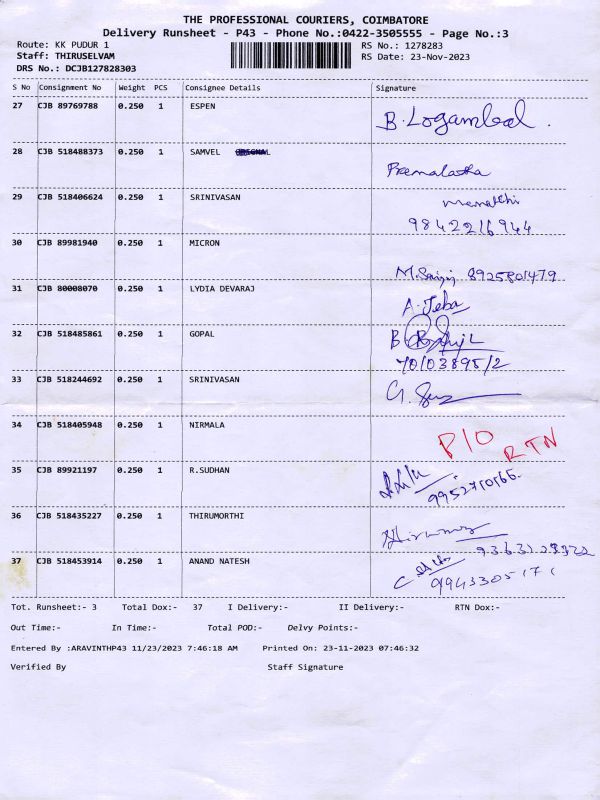 THE PROFESSIONAL COURIERS, COIMBATORE
Delivery Runsheet - P43 - Phone No.:0422-3505555 - Page No.:3
Route: KK PUDUR 1 RS No.: 1278283
Staff: THIRUSELVAM RS Date: 23-Nov-2023
DRS No.: DCJB127828303
S No Consignment No Weight PCS Consignee Details Signature
27 CJB 89769788 0.250 1 ESPEN B. Logambal.
28 CJB 518488373 0.250 1 SAMVEL Premalatha
29 CJB 518406624 0.250 1 SRINIVASAN
9842216944
30 CJB 89981940 0.250 1 MICRON
8925801479
31 CJB 80008070 0.250 1 LYDIA DEVARAJ A. Jeba
32 CJB 518485861 0.250 1 GOPAL
7010389512
33 CJB 518244692 0.250 1 SRINIVASAN
34 CJB 518405948 0.250 1 NIRMALA P/O RTN
35 CJB 89921197 0.250 1 R.SUDHAN
36 CJB 518435227 0.250 1 THIRUMORTHI
37 CJB 518453914 0.250 1 ANAND NATESH
Tot. Runsheet:- 3 Total Dox:- 37 I Delivery:- II Delivery:- RTN Dox:-
Out Time:- In Time:- Total POD:- Delvy Points:-
Entered By :ARAVINTHP43 11/23/2023 7:46:18 AM Printed On: 23-11-2023 07:46:32
Verified By Staff Signature